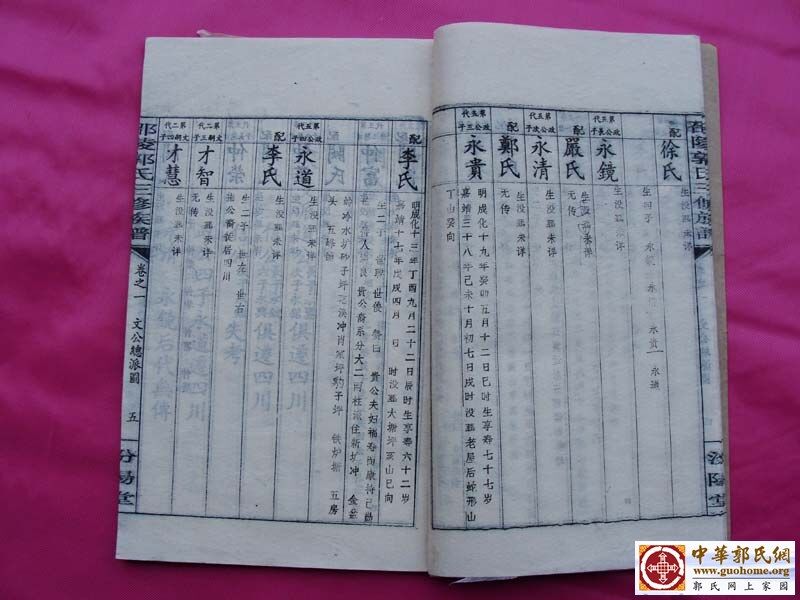 邵陵郭氏三修族譜
汾陽堂
配
徐氏
生没葬未详
永鏡
永貴
第五代
政公長子
永鏡
生没葬未详
配
嚴氏
生没葬未详
无传
第五代
政公次子
永清
生没葬未详
无传
配
鄭氏
生没葬未详
第五代
政公三子
永貴
明成化十九年癸卯五月十二日巳时生享寿七十七岁
嘉靖三十八年己未十月初七日戌时没葬老屋后蛇形山
丁山癸向
配
李氏
明成化十三年丁酉九月二十二日辰时生享寿六十二岁
嘉靖十七年戊戌四月 日 时没葬大塘坪亥山巳向
生二子
第五代
政公四子
永道
生没葬未详
配
李氏
生没葬未详
生二子
第二代
文朝三子
才智
生没葬未详
无传
第二代
文朝四子
才慧
生没葬未详
邵陵郭氏三修族譜
卷之一
文公總派圖
五
汾陽堂
中華郭氏網
www.guohome.org
郭氏网上家园